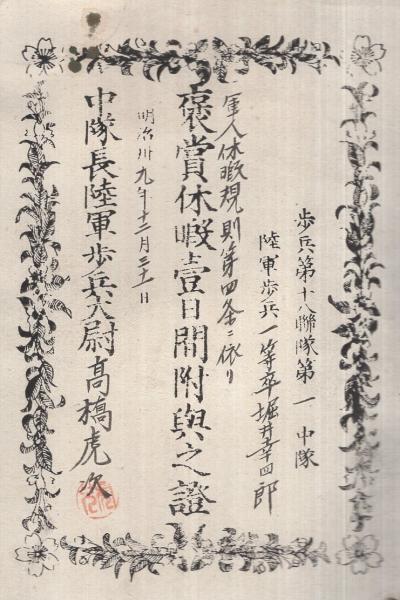 歩兵第十八聯隊第一中隊
陸軍歩兵一等卒堀井幸四郎
軍人休暇規則第四条ニ依リ
褒賞休暇壹日間附與之證
明治卅九年十二月三十一日
中隊長陸軍歩兵大尉髙橋虎次